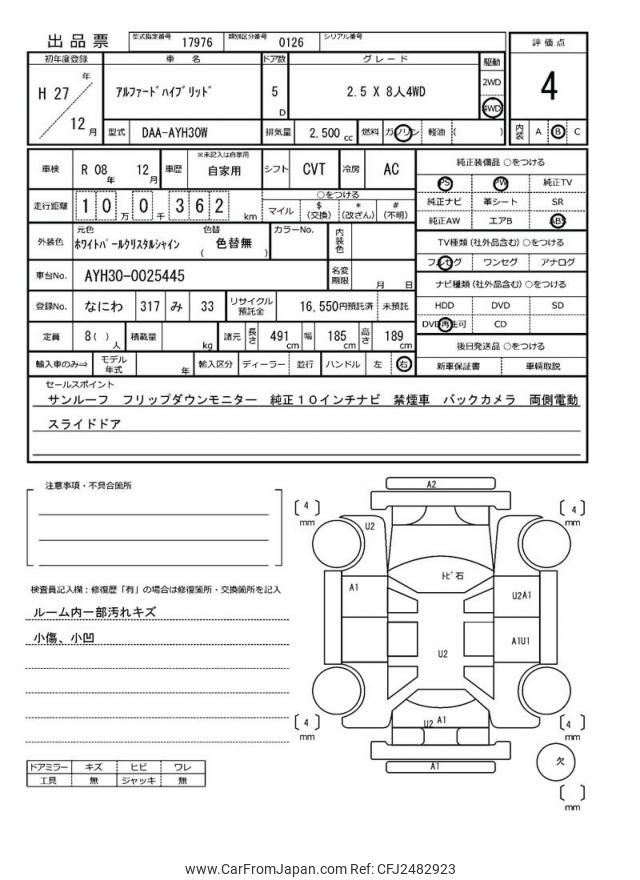 出品票 型式指定番号 17976 類別区分番号 0126 シリアル番号
評価点
4
初年度登録 車名 ドア数 グレード 駆動
H 27 年 12 月
アルファードハイブリッド 5 D 2.5 X 8人4WD
2WD
4WD
型式 DAA-AYH30W 排気量 2,500 cc 燃料 ガソリン 軽油 ( )
内装 A B C
車検 R 08 年 12 月 車歴 ※未記入は自家用 自家用 シフト CVT 冷房 AC
純正装備品 ○をつける
PS PW 純正TV
純正ナビ 革シート SR
純正AW エアB ABS
走行距離 1 0 万 0 千 3 6 2 km
○をつける
マイル $ (交換) * (改ざん) # (不明)
外装色 元色 ホワイトパールクリスタルシャイン 色替 ( 色替無 ) カラーNo. 内装色
TV種類(社外品含む) ○をつける
フルセグ ワンセグ アナログ
車台No. AYH30-0025445 名変期限 月 日
ナビ種類(社外品含む) ○をつける
HDD DVD SD
DVD再生可 CD
登録No. なにわ 317 み 33 リサイクル預託金 16,550円預託済 未預託
定員 8( ) 人 積載量 kg 諸元 長さ 491 cm 幅 185 cm 高さ 189 cm
後日発送品 ○をつける
新車保証書 車輌取説
輸入車のみ⇒ モデル年式 年 輸入区分 ディーラー 並行 ハンドル 左 右
セールスポイント
サンルーフ フリップダウンモニター 純正10インチナビ 禁煙車 バックカメラ 両側電動
スライドドア
注意事項・不具合箇所
検査員記入欄:修復歴「有」の場合は修復箇所・交換箇所を記入
ルーム内一部汚れキズ
小傷、小凹
ドアミラー キズ ヒビ ワレ
工具 無 ジャッキ 無
A2
[ 4 ] mm
[ 4 ] mm
U2
トビ石
A1
U2A1
A1U1
U2
U2 A1
[ 4 ] mm
[ 4 ] mm
A1
欠
[ ] mm
www.CarFromJapan.com Ref: CFJ2482923